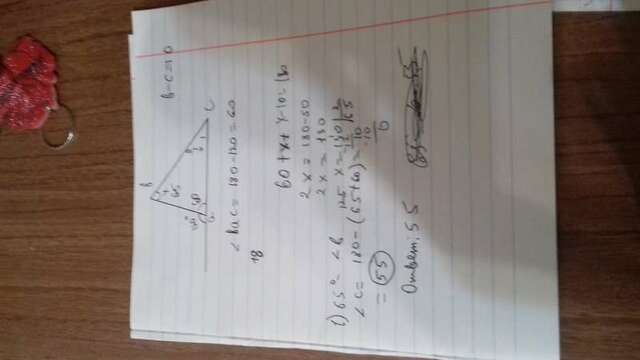 b
65
b-c=10
60
a
c
∠bac = 180-120 = 60
60+x+x-10=180
2x = 180-50
2x = 130
1) 65° = ∠b
x = 130 | 2
12 | 65
10
-10
0
∠c = 180-(65+60) =
125
= 55
Ответ: 55